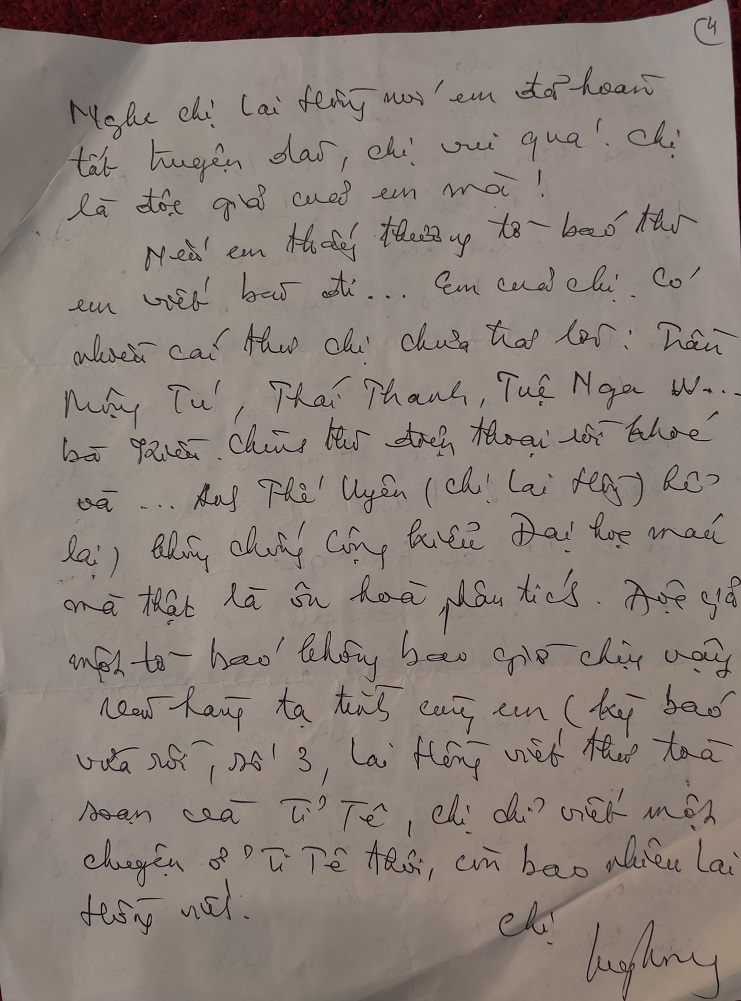 4
Nghe chị Lai Hồng nói em đã hoàn
tất truyện dài, chị vui quá! Chị
là độc giả của em mà!
Nếu em thấy thương tờ báo thì
em viết bài đi... Em của chị. Có
nhiều cái thư chị chưa trả lời: Trần
Mộng Tú, Thái Thanh, Tuệ Nga vv...
bà Kiều. Chúng thư điện thoại rồi khoẻ
và ... Anh Thế Uyên (chị Lai Hồng)
lại) không chống Cộng kiểu Đại học máu
mà thật là ôn hoà, phân tích. Độc giả
một tờ báo không bao giờ chịu vậy
hàng tạ tình cùng em (kỳ báo
vừa rồi, số 3, Lai Hồng viết thư toà
soạn và Tỉ Tê, chị chỉ viết một
chuyện ở Tỉ Tê thôi, còn bao nhiêu Lai
Hồng viết.
Chị